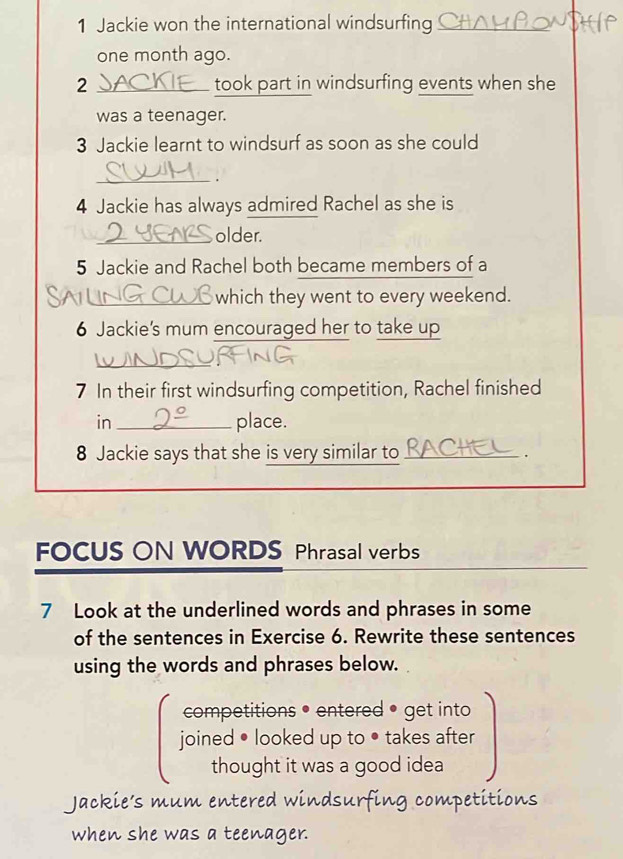 1 Jackie won the international windsurfing CHAMPIONSHIP
one month ago.
2 JACKIE took part in windsurfing events when she
was a teenager.
3 Jackie learnt to windsurf as soon as she could
SWIM.
4 Jackie has always admired Rachel as she is
2 YEARS older.
5 Jackie and Rachel both became members of a
SAILING CLUB which they went to every weekend.
6 Jackie's mum encouraged her to take up
WINDSURFING.
7 In their first windsurfing competition, Rachel finished
in 2º place.
8 Jackie says that she is very similar to RACHEL.
FOCUS ON WORDS Phrasal verbs
7 Look at the underlined words and phrases in some
of the sentences in Exercise 6. Rewrite these sentences
using the words and phrases below.
competitions • entered • get into
joined • looked up to • takes after
thought it was a good idea
Jackie's mum entered windsurfing competitions
when she was a teenager.